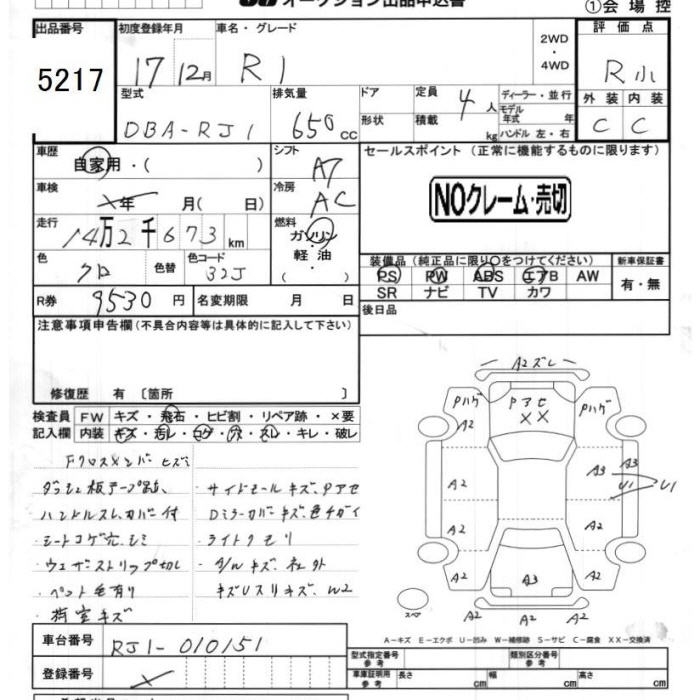 オークション出品申込書
①会場控
出品番号
5217
初度登録年月
17年 12月
車名・グレード
R1
2WD
・
4WD
評価点
R小
外装 内装
C C
型式
DBA-RJ1
排気量
650cc
ドア
形状
定員
4人
積載
kg
ディーラー・並行
モデル
年式 年
ハンドル 左・右
車歴
自家用・( )
シフト
A7
セールスポイント (正常に機能するものに限ります)
NOクレーム・売切
車検
年 月( 日)
冷房
AC
走行
14万2千673km
燃料
ガソリン
軽油
色
クロ
色替
色コード
32J
装備品 (純正品に限り○をつけてください)
新車保証書
PS PW ABS エアB AW
SR ナビ TV カワ
有・無
R券
9530円
名変期限 月 日
後日品
注意事項申告欄 (不具合内容等は具体的に記入して下さい)
修復歴 有 〔箇所 〕
検査員
記入欄
FW キズ・飛石・ヒビ割・リペア跡・×要
内装 キズ・汚レ・コゲ・穴・スレ・キレ・破レ
Fクロスメンバーヒズミ
ダッシュ板テープ跡、
ハンドルスレ、カバー付
・シートコゲ穴、シミ
・ウェザストリップ切れ
・ペット毛有り
・荷室キズ
・サイドモールキズ、Pアセ
Dミラーカバーキズ、色チガイ
・ライトクモリ
・A/Wキズ、社外
キズUスリキズ、W2
A2ズレ
Pハゲ
A2
Pアセ
XX
Pハゲ
A2
A2
A2
A3
A3
U1
U1
A2
A2
A3
A2
A2
A2
スペア
A-キズ E-エクボ U-凹み W-補修跡 S-サビ C-腐食 XX-交換済
車台番号
RJ1-010151
登録番号
型式指定番号
参考
類別区分番号
参考
車庫証明用
参考
長さ cm
幅 cm
高さ cm